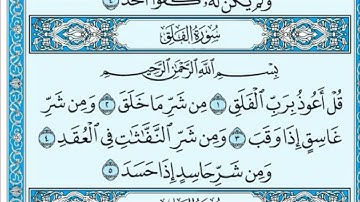 وَلَمْ يَكُن لَّهُۥ كُفُوًا أَحَدٌۢ ٤
سُورَةُ الْفَلَقِ
بِسْمِ ٱللَّهِ ٱلرَّحْمَٰنِ ٱلرَّحِيمِ
قُلْ أَعُوذُ بِرَبِّ ٱلْفَلَقِ ١ مِن شَرِّ مَا خَلَقَ ٢ وَمِن شَرِّ
غَاسِقٍ إِذَا وَقَبَ ٣ وَمِن شَرِّ ٱلنَّفَّٰثَٰتِ فِى ٱلْعُقَدِ ٤
وَمِن شَرِّ حَاسِدٍ إِذَا حَسَدَ ٥